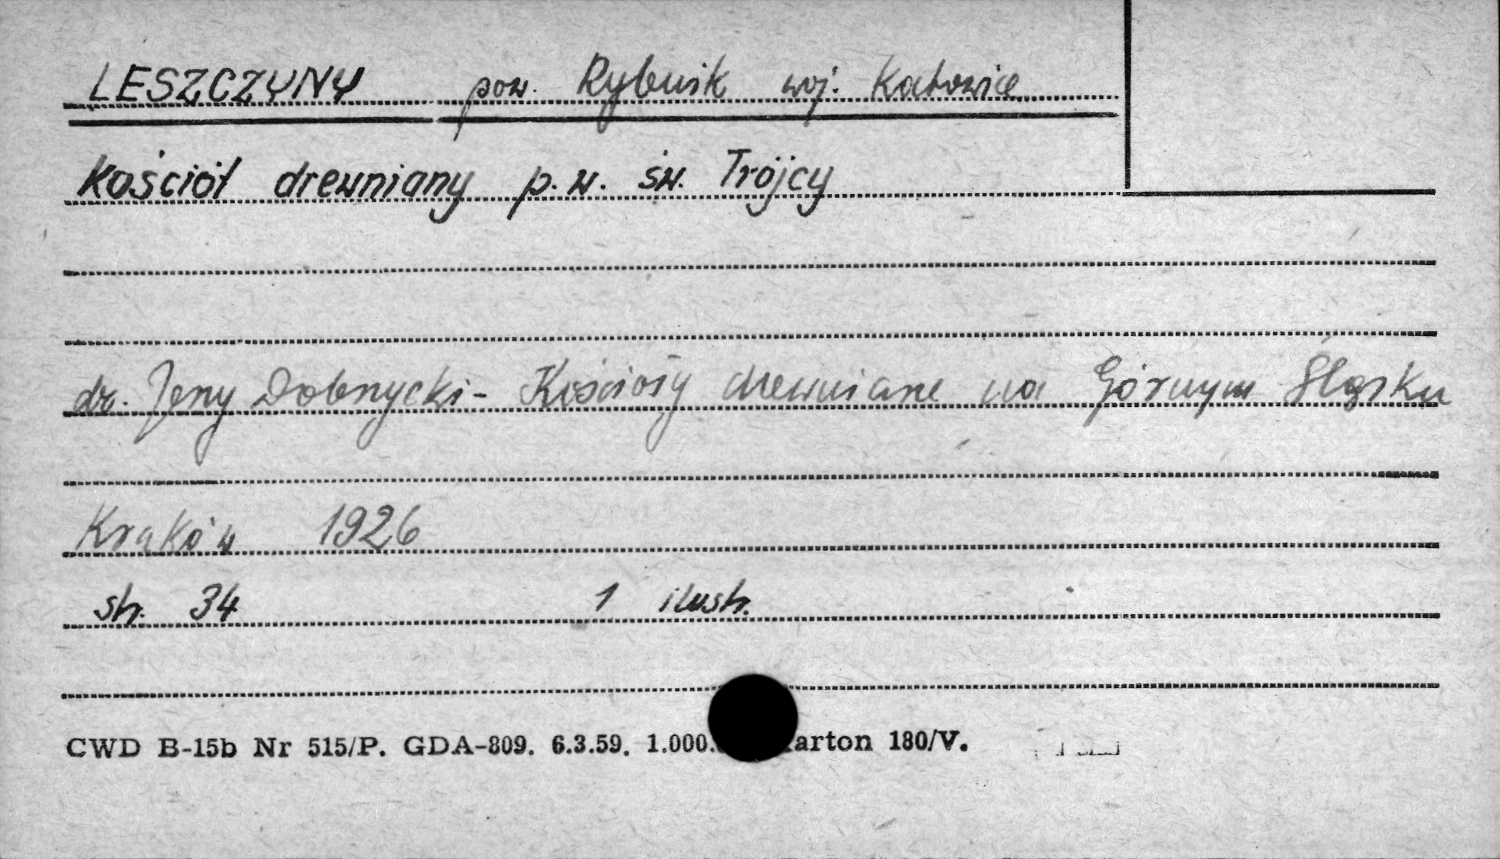 LESZCZYNY pow. Rybnik woj. Katowice
Kościół drewniany p.w. św. Trójcy
dr. Jerzy Dobrzycki - Kościoły drewniane na Górnym Śląsku
Kraków 1926
str. 34 1 ilustr.
CWD B-15b Nr 515/P. GDA-809. 6.3.59. 1.000. arton 180/V.